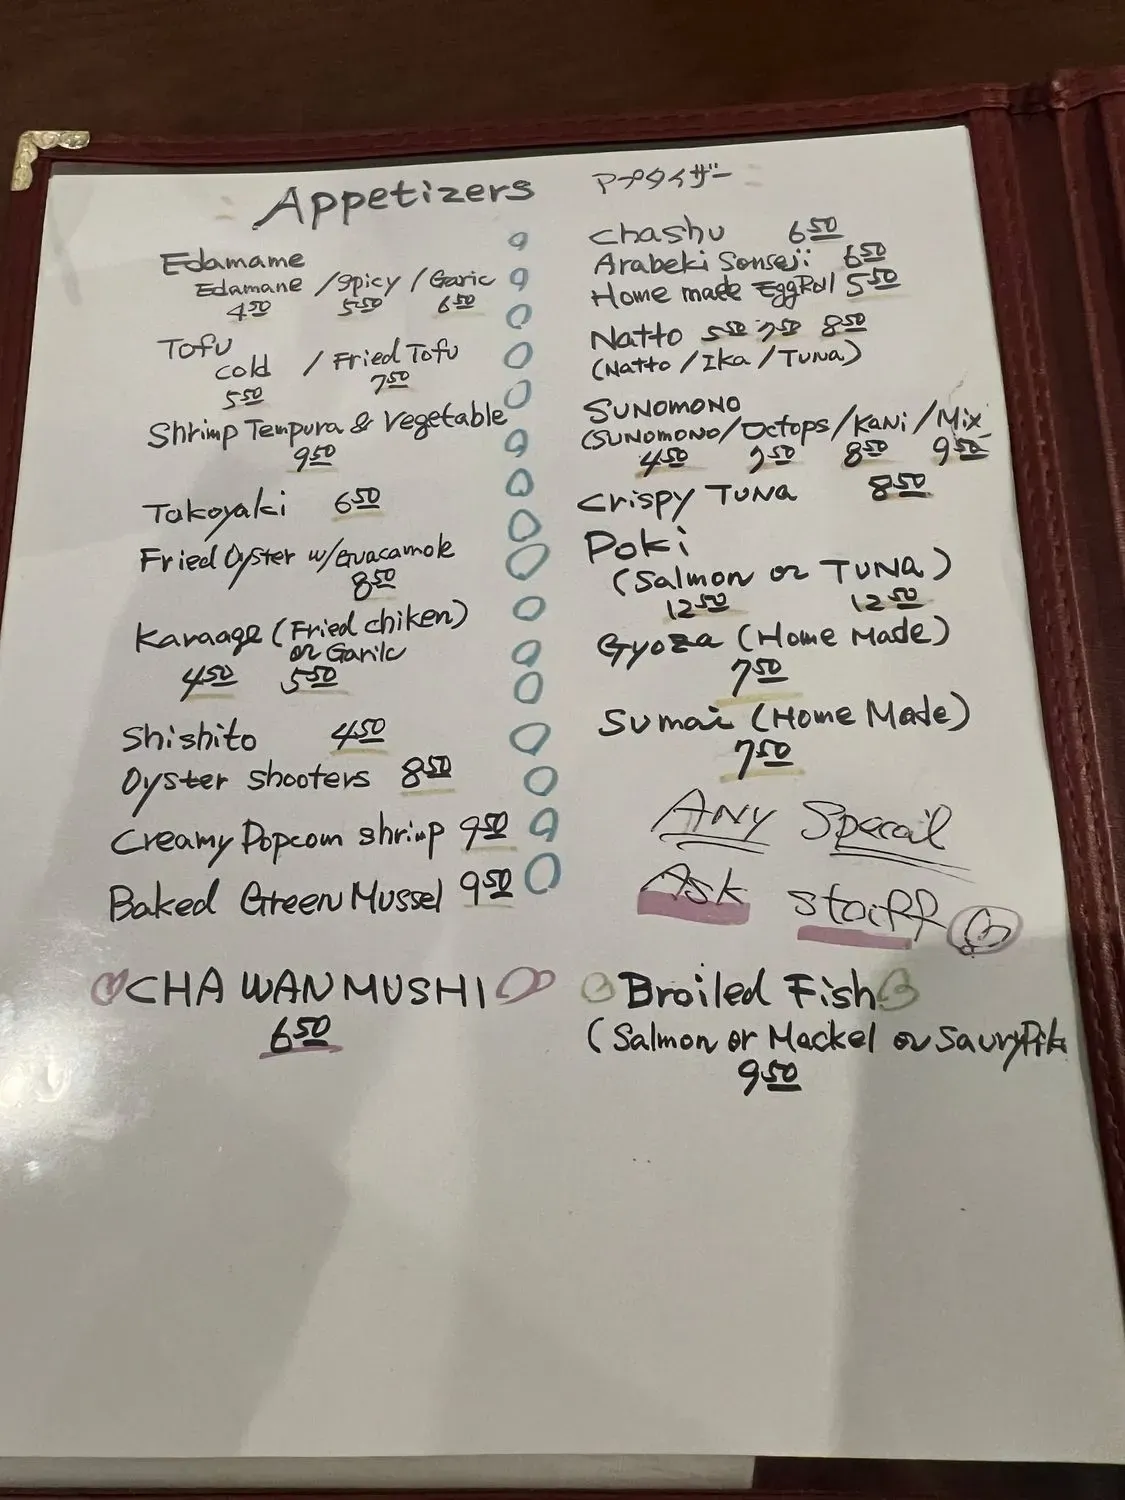 Appetizers
アプタイザー
Edamame
Edamane / Spicy / Garic
4.50 5.50 6.50
Tofu
cold / Fried Tofu
5.50 7.50
Shrimp Tempura & Vegetable
9.50
Takoyaki 6.50
Fried Oyster w/Guacamole
8.50
Karaage (Fried chiken)
or Garilc
4.50 5.50
Shishito 4.50
Oyster shooters 8.50
Creamy Popcorn shrimp 9.50
Baked Green Mussel 9.50
CHAWANMUSHI
6.50
Chashu 6.50
Arabeki Sonseji 6.50
Home made EggRoll 5.50
Natto 5.50 7.50 8.50
(Natto / Ika / Tuna)
SUNOMONO
(SUNOMONO / Octops / Kani / Mix
4.50 7.50 8.50 9.50
Crispy TUNA 8.50
Poki
(Salmon or TUNA)
12.50 12.50
Gyoza (Home Made)
7.50
Sumai (Home Made)
7.50
ANY Specail
Ask staiff
Broiled Fish
(Salmon or Mackel or Saury
9.50